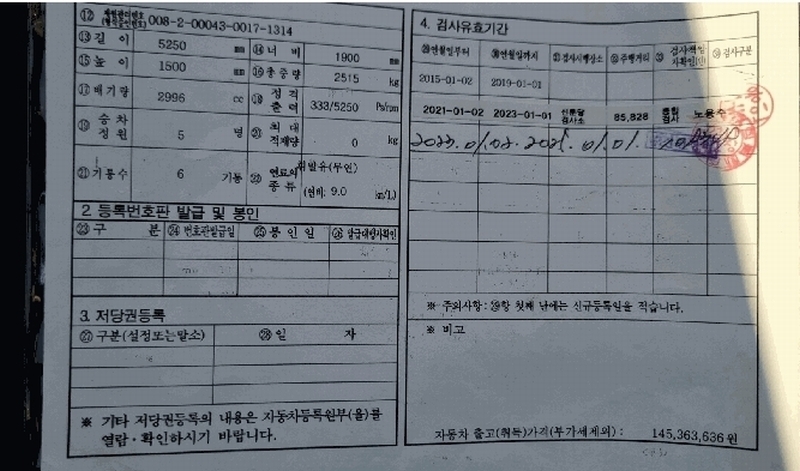 ⑫ 제원관리번호 (형식승인번호) 008-2-00043-0017-1314
⑬ 길 이 5250 mm ⑭ 너 비 1900 mm
⑮ 높 이 1500 mm ⑯ 총중량 2515 kg
⑰ 배기량 2996 cc ⑱ 정격 출력 333/5250 Ps/rpm
⑲ 승차 정원 5 명 ⑳ 최대 적재량 0 kg
㉑ 기통수 6 기통 ㉒ 연료의 종류 휘발유(무연) (연비: 9.0 km/L)
2. 등록번호판 발급 및 봉인
㉓ 구 분 ㉔ 번호판발급일 ㉕ 봉인일 ㉖ 발급대행자확인
3. 저당권등록
㉗ 구분(설정또는말소) ㉘ 일 자
※ 기타 저당권등록의 내용은 자동차등록원부(을)를
열람·확인하시기 바랍니다.
4. 검사유효기간
㉙ 연월일부터 ㉚ 연월일까지 ㉛ 검사시행장소 ㉜ 주행거리 ㉝ 검사책임자확인(인) ㉞ 검사구분
2015-01-02 2019-01-01
2021-01-02 2023-01-01 검사소 85,828 종합검사 노용수
2023. 01. 02. 01. 01.
※ 주의사항: ㉙항 첫째 난에는 신규등록일을 적습니다.
※ 비고
자동차 출고(취득)가격(부가세제외) : 145,363,636 원